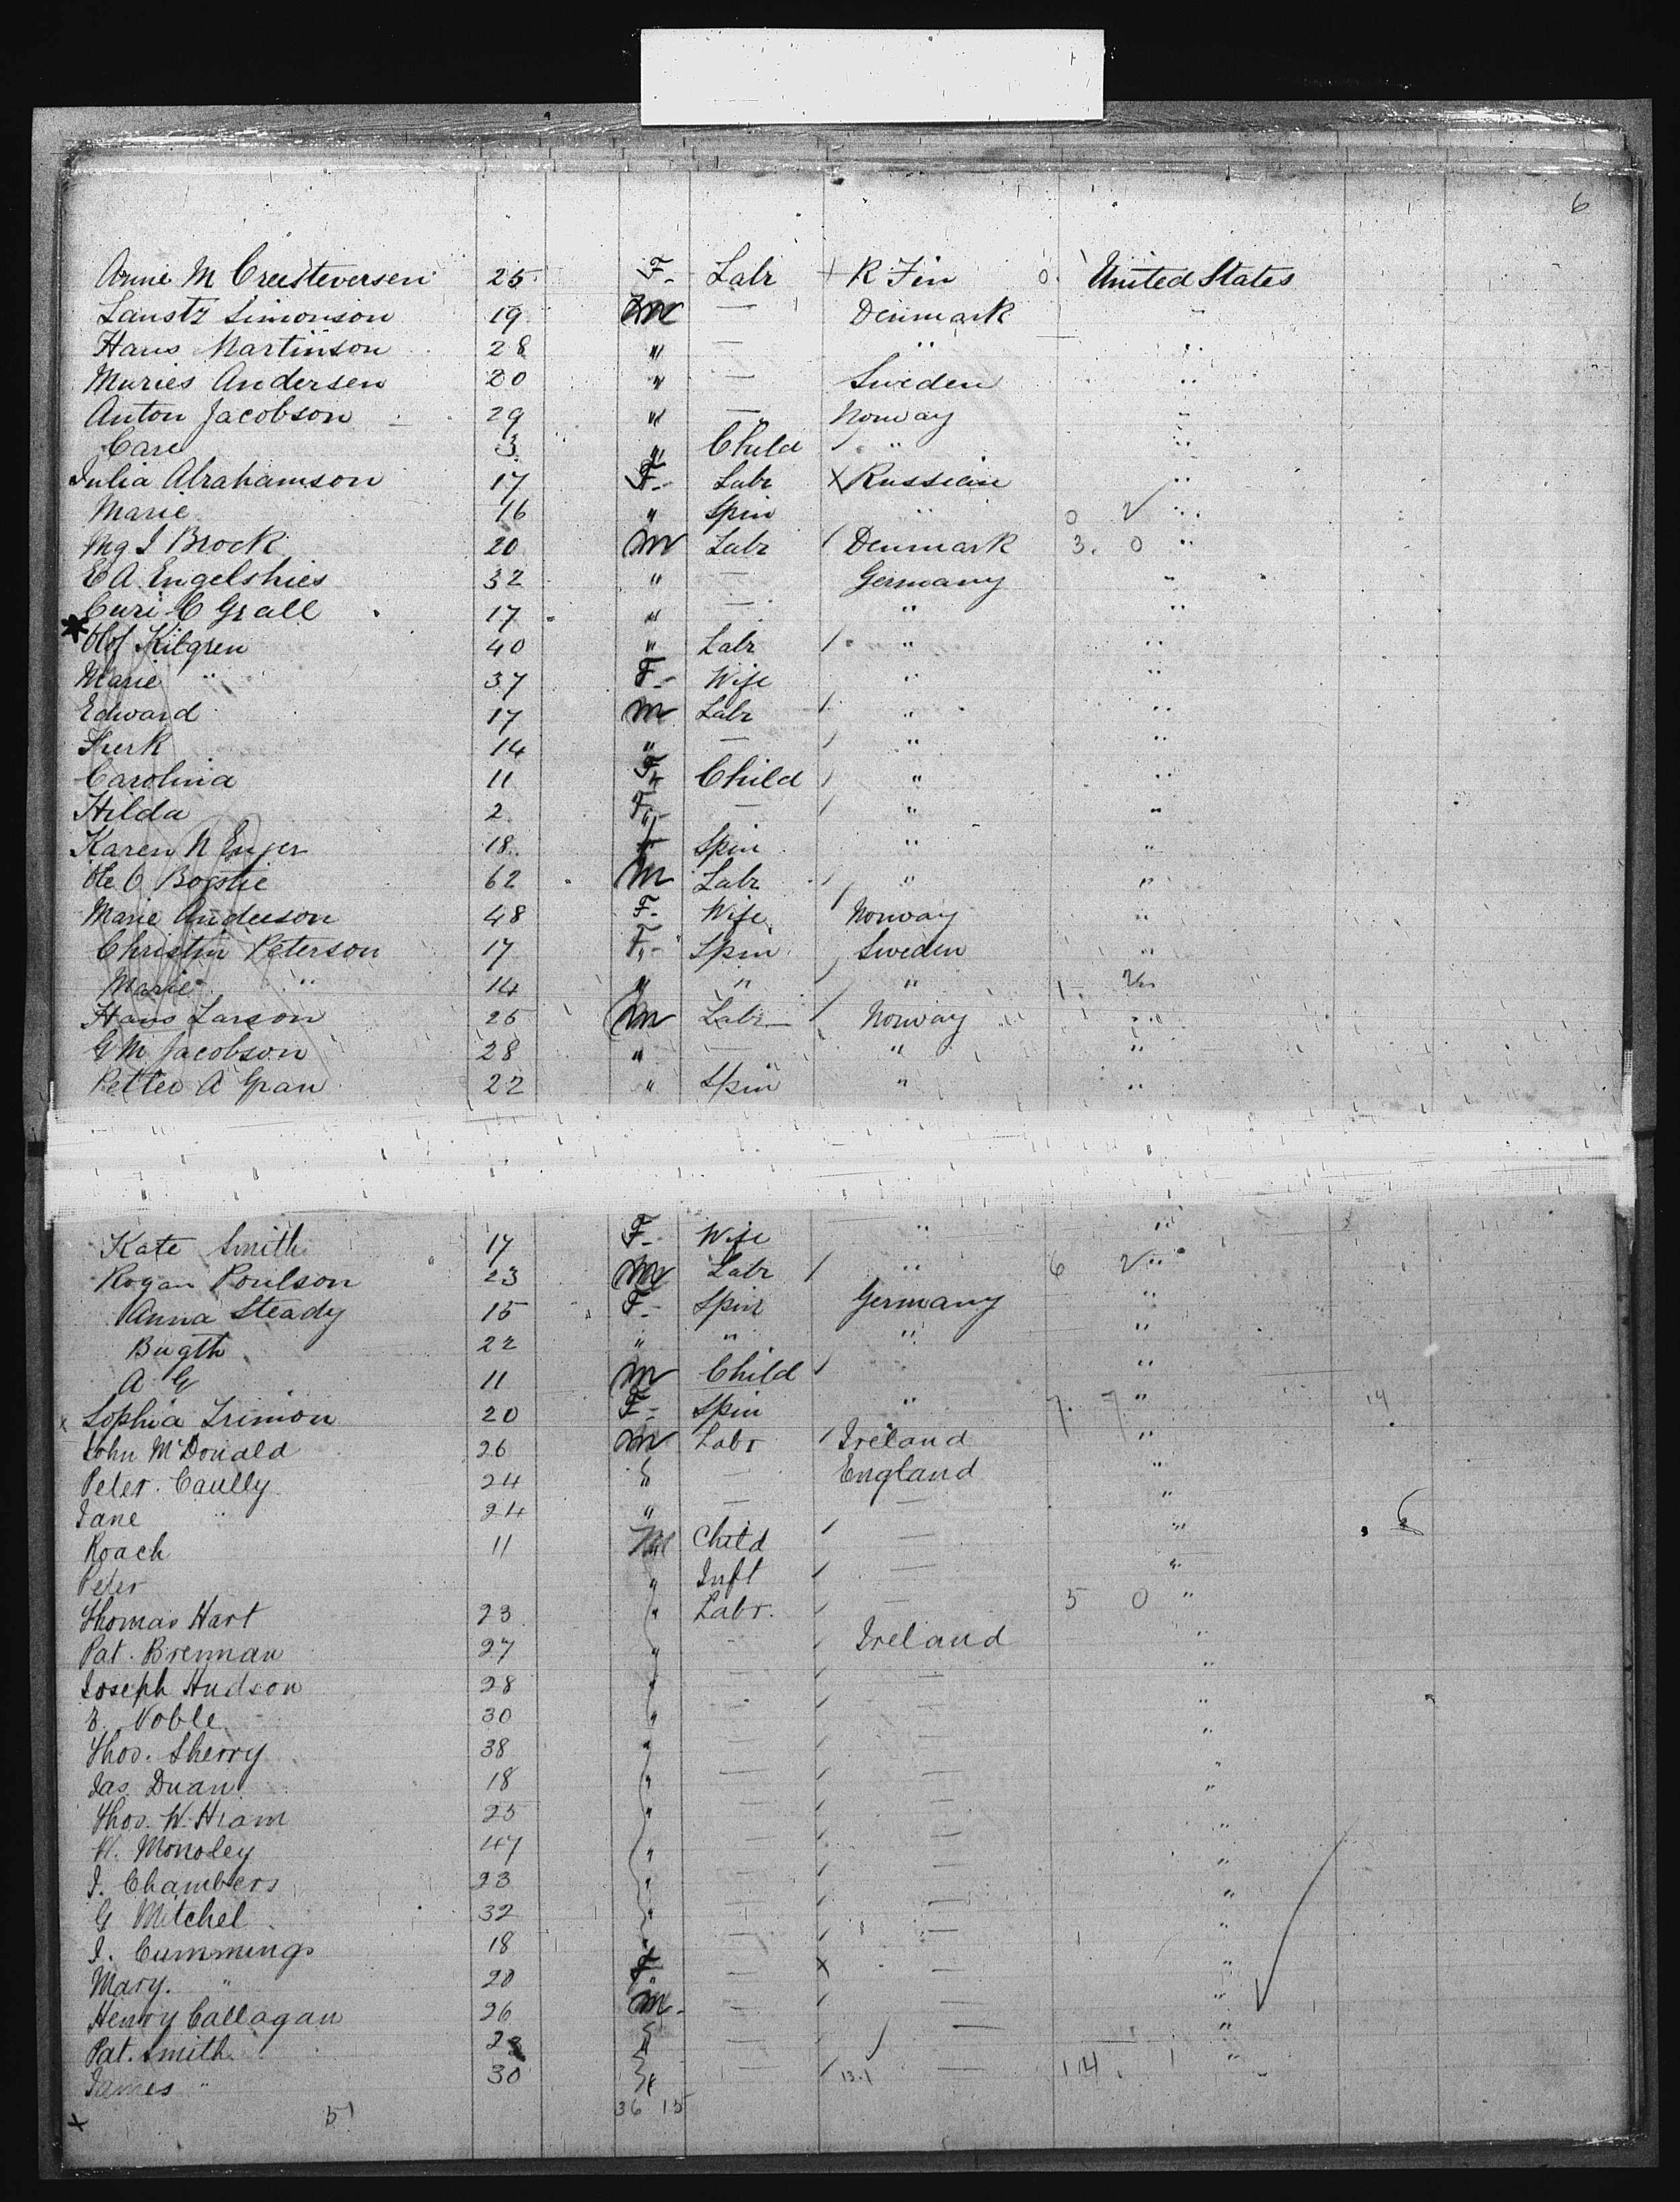 6
Anne M Creesteversen 25 F- Labr + R Fin 0. United States
Laustz Simonson 19 M — Denmark "
Hans Martinson 28 " — " "
Muries Andersen 20 " — Sweden "
Anton Jacobson 29 " — Norway "
Care 3 " Child / " "
Julia Abrahamson 17 F- Labr X Russian "
Marie 16 " Spin " 0 2 "
Mg I Brock 20 M Labr / Denmark 3. 0 "
E A Engelshies 32 " — Germany "
Curi C Grall 17 " — " "
Olof Kilgren 40 " Labr / " "
Marie " 37 F- Wife " "
Edward 17 M Labr / " "
14 " — / " "
Carolina 11 F " Child / " "
Hilda 2 F " — / " "
Karen N Enger 18 F Spin " "
Ole O Borstie 62 M Labr / " "
Marie Anderson 48 F- Wife / Norway "
Christin Peterson 17 F " Spin Sweden "
Marie " 14 " " / " 1. 2 "
Hans Larson 25 M Labr — / Norway "
G M Jacobson 28 " — " "
Petter A Gran 22 " Spin " "
Kate Smith 17 F- Wife " "
Rogan Poulson 23 M Labr / " 6 2 "
Anna Steady 15 F- Spin Germany "
Bugth 22 " " " "
A G 11 M Child / "
Sophia Trimon 20 F- Spin " 7. 7 " 14
John McDonald 26 M Labr / Ireland "
Peter. Caully 24 " — England "
Jane " 24 " — — "
Roach 11 M Child / — "
Peter " Inft / — "
Thomas Hart 23 " Labr. / — 5 0 "
Pat. Brennan 27 " — / Ireland "
Joseph Hudson 28 " — / — "
Noble 30 " — / — "
Thos. Sherry 38 " — / — "
Jas. Duan 18 " — / — "
Thos. W. Hram 25 " — / — "
Monoley 47 " — / — "
J. Chambers 23 " — / — "
G Mitchel 32 " — / — "
J. Cummings 18 " — / — "
Mary. " 20 F — X — "
Henry Callagan 26 M- — / — "
Pat. Smith 23 " — / — "
James " 30 " — / 13.1 — 14. 1 "
X 51 36 15